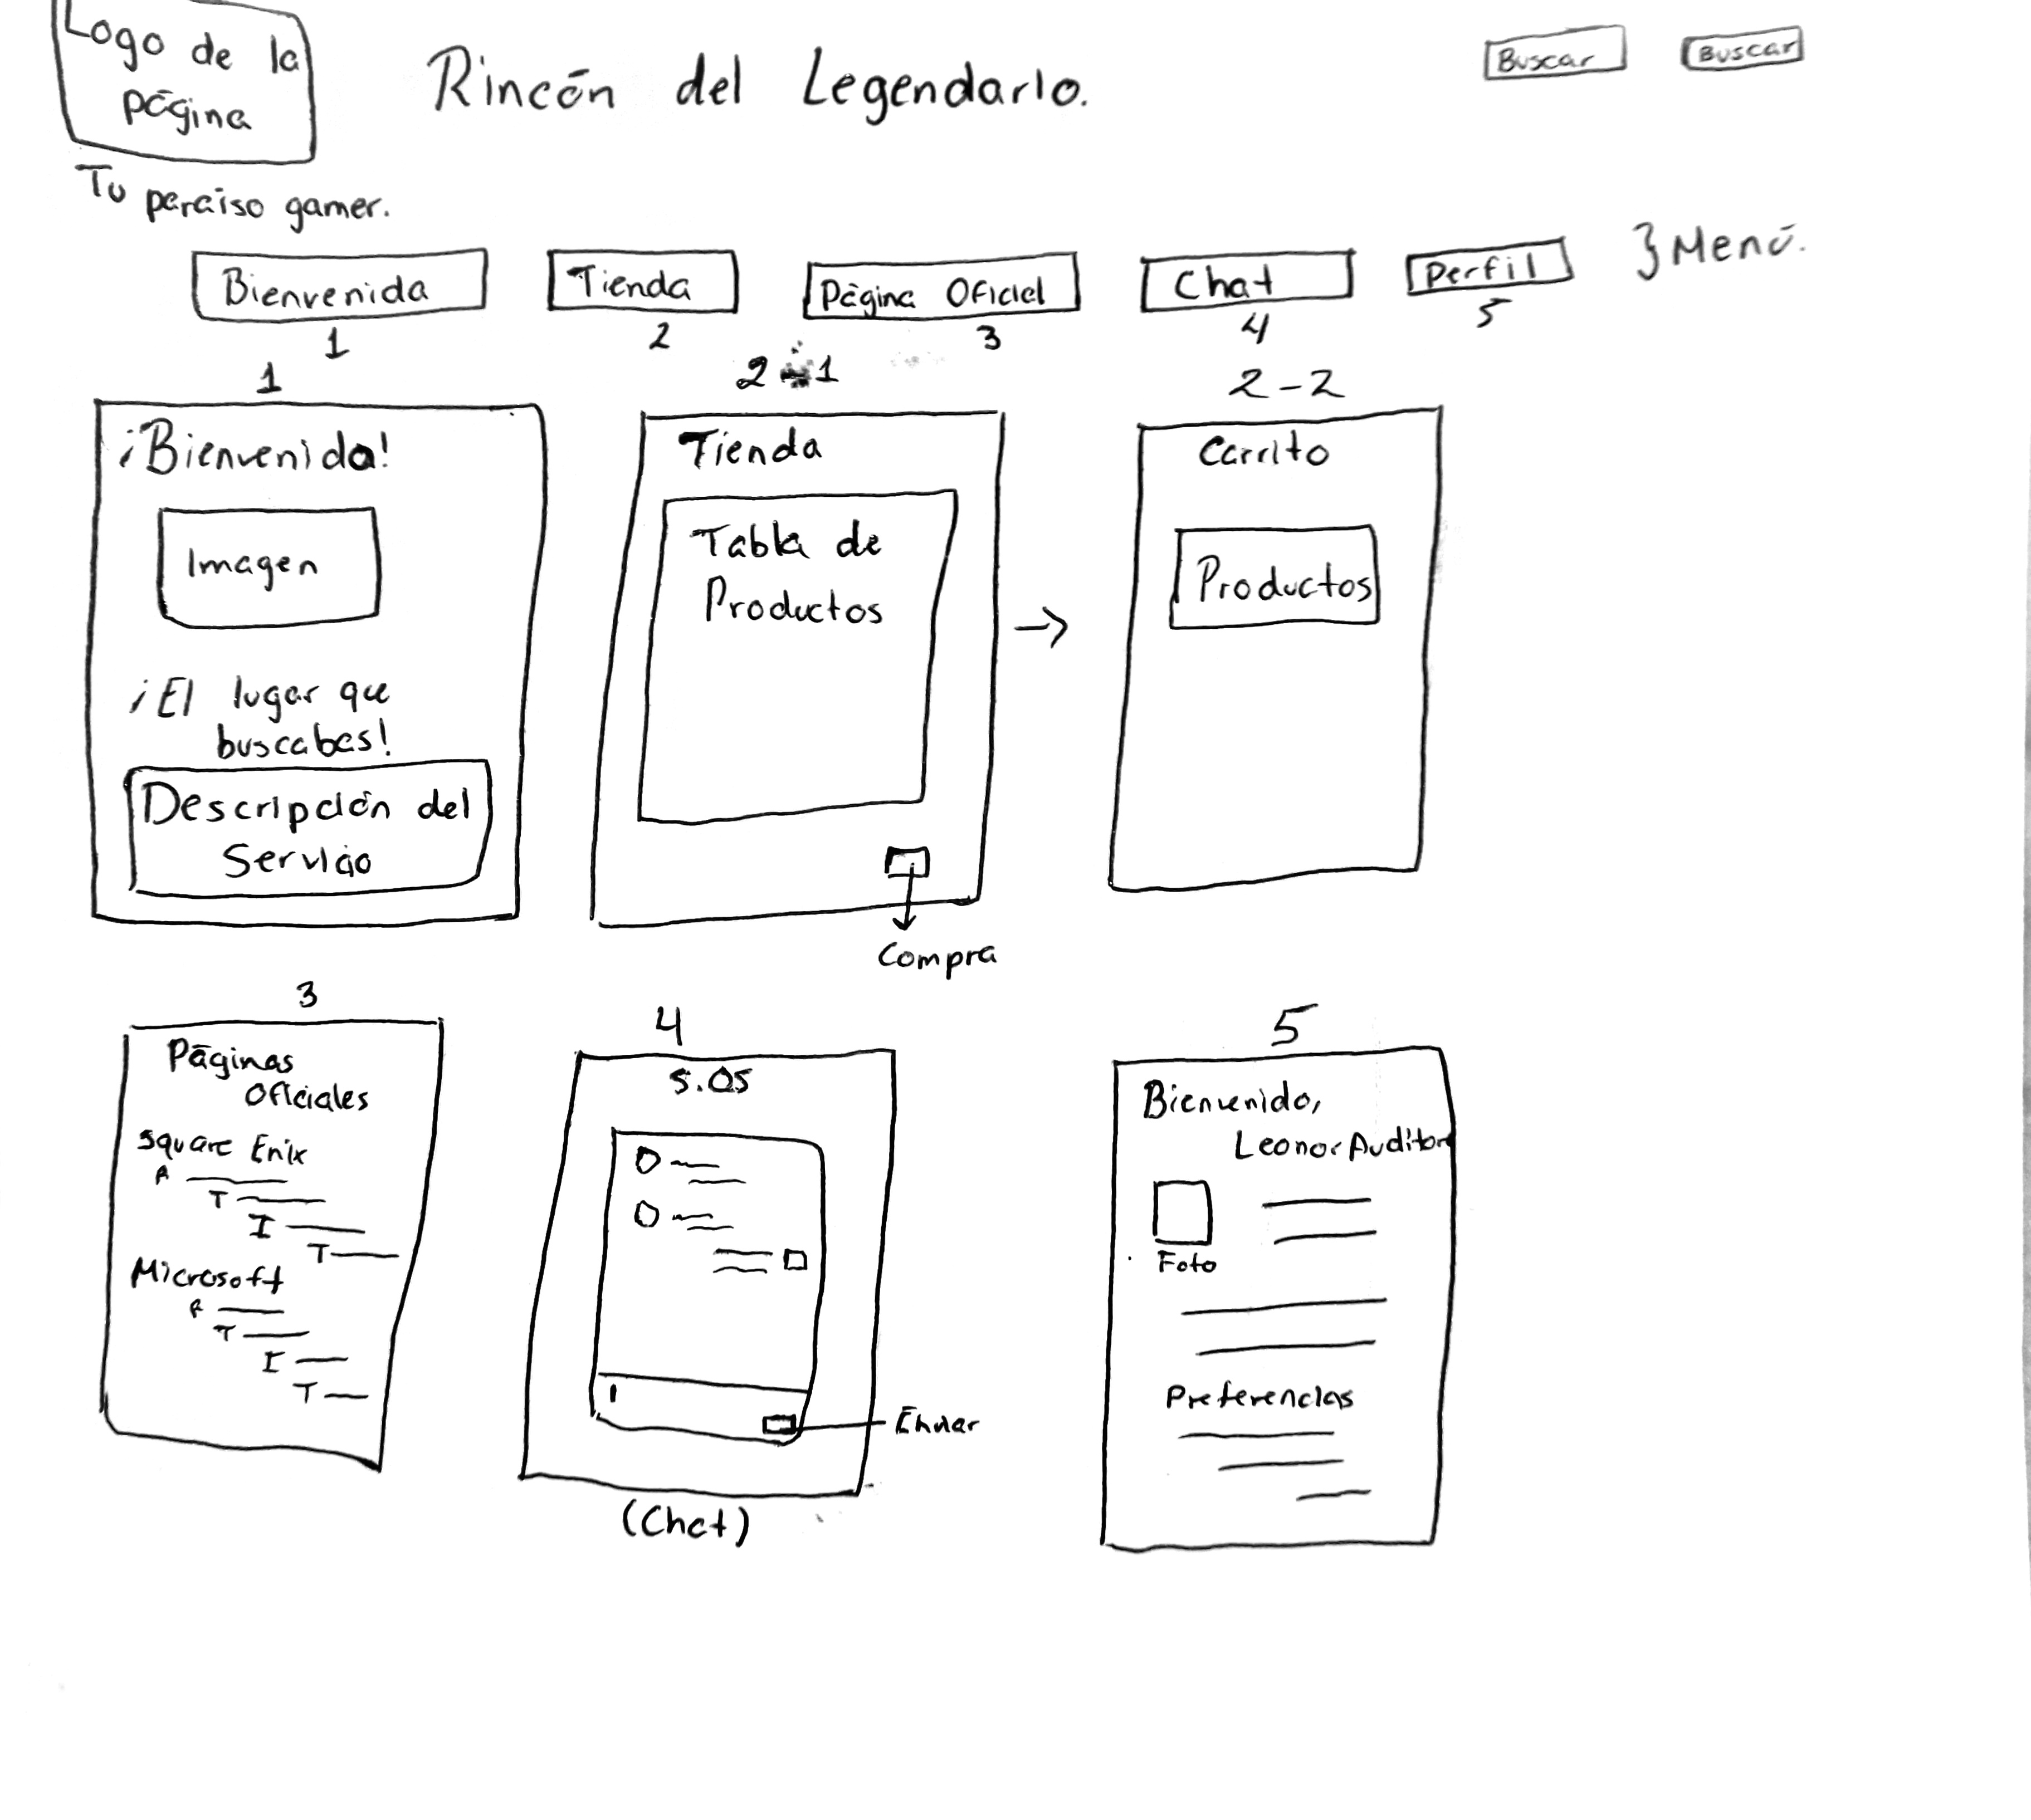 Logo de la
página
Rincón del Legendario.
Buscar
Buscar
Tu paraiso gamer.
Bienvenida
Tienda
Página Oficial
Chat
Perfil
} Menú.
1
2
3
4
5
1
¡Bienvenida!
Imagen
¡El lugar que
buscabas!
Descripción del
Servicio
2-1
Tienda
Tabla de
Productos
Compra
→
2-2
Carrito
Productos
3
Páginas
Oficiales
Square Enix
A
T
I
T
Microsoft
A
T
I
T
4
S.OS
Enviar
(Chat)
5
Bienvenido,
Leonor Auditore
Foto
Preferencias